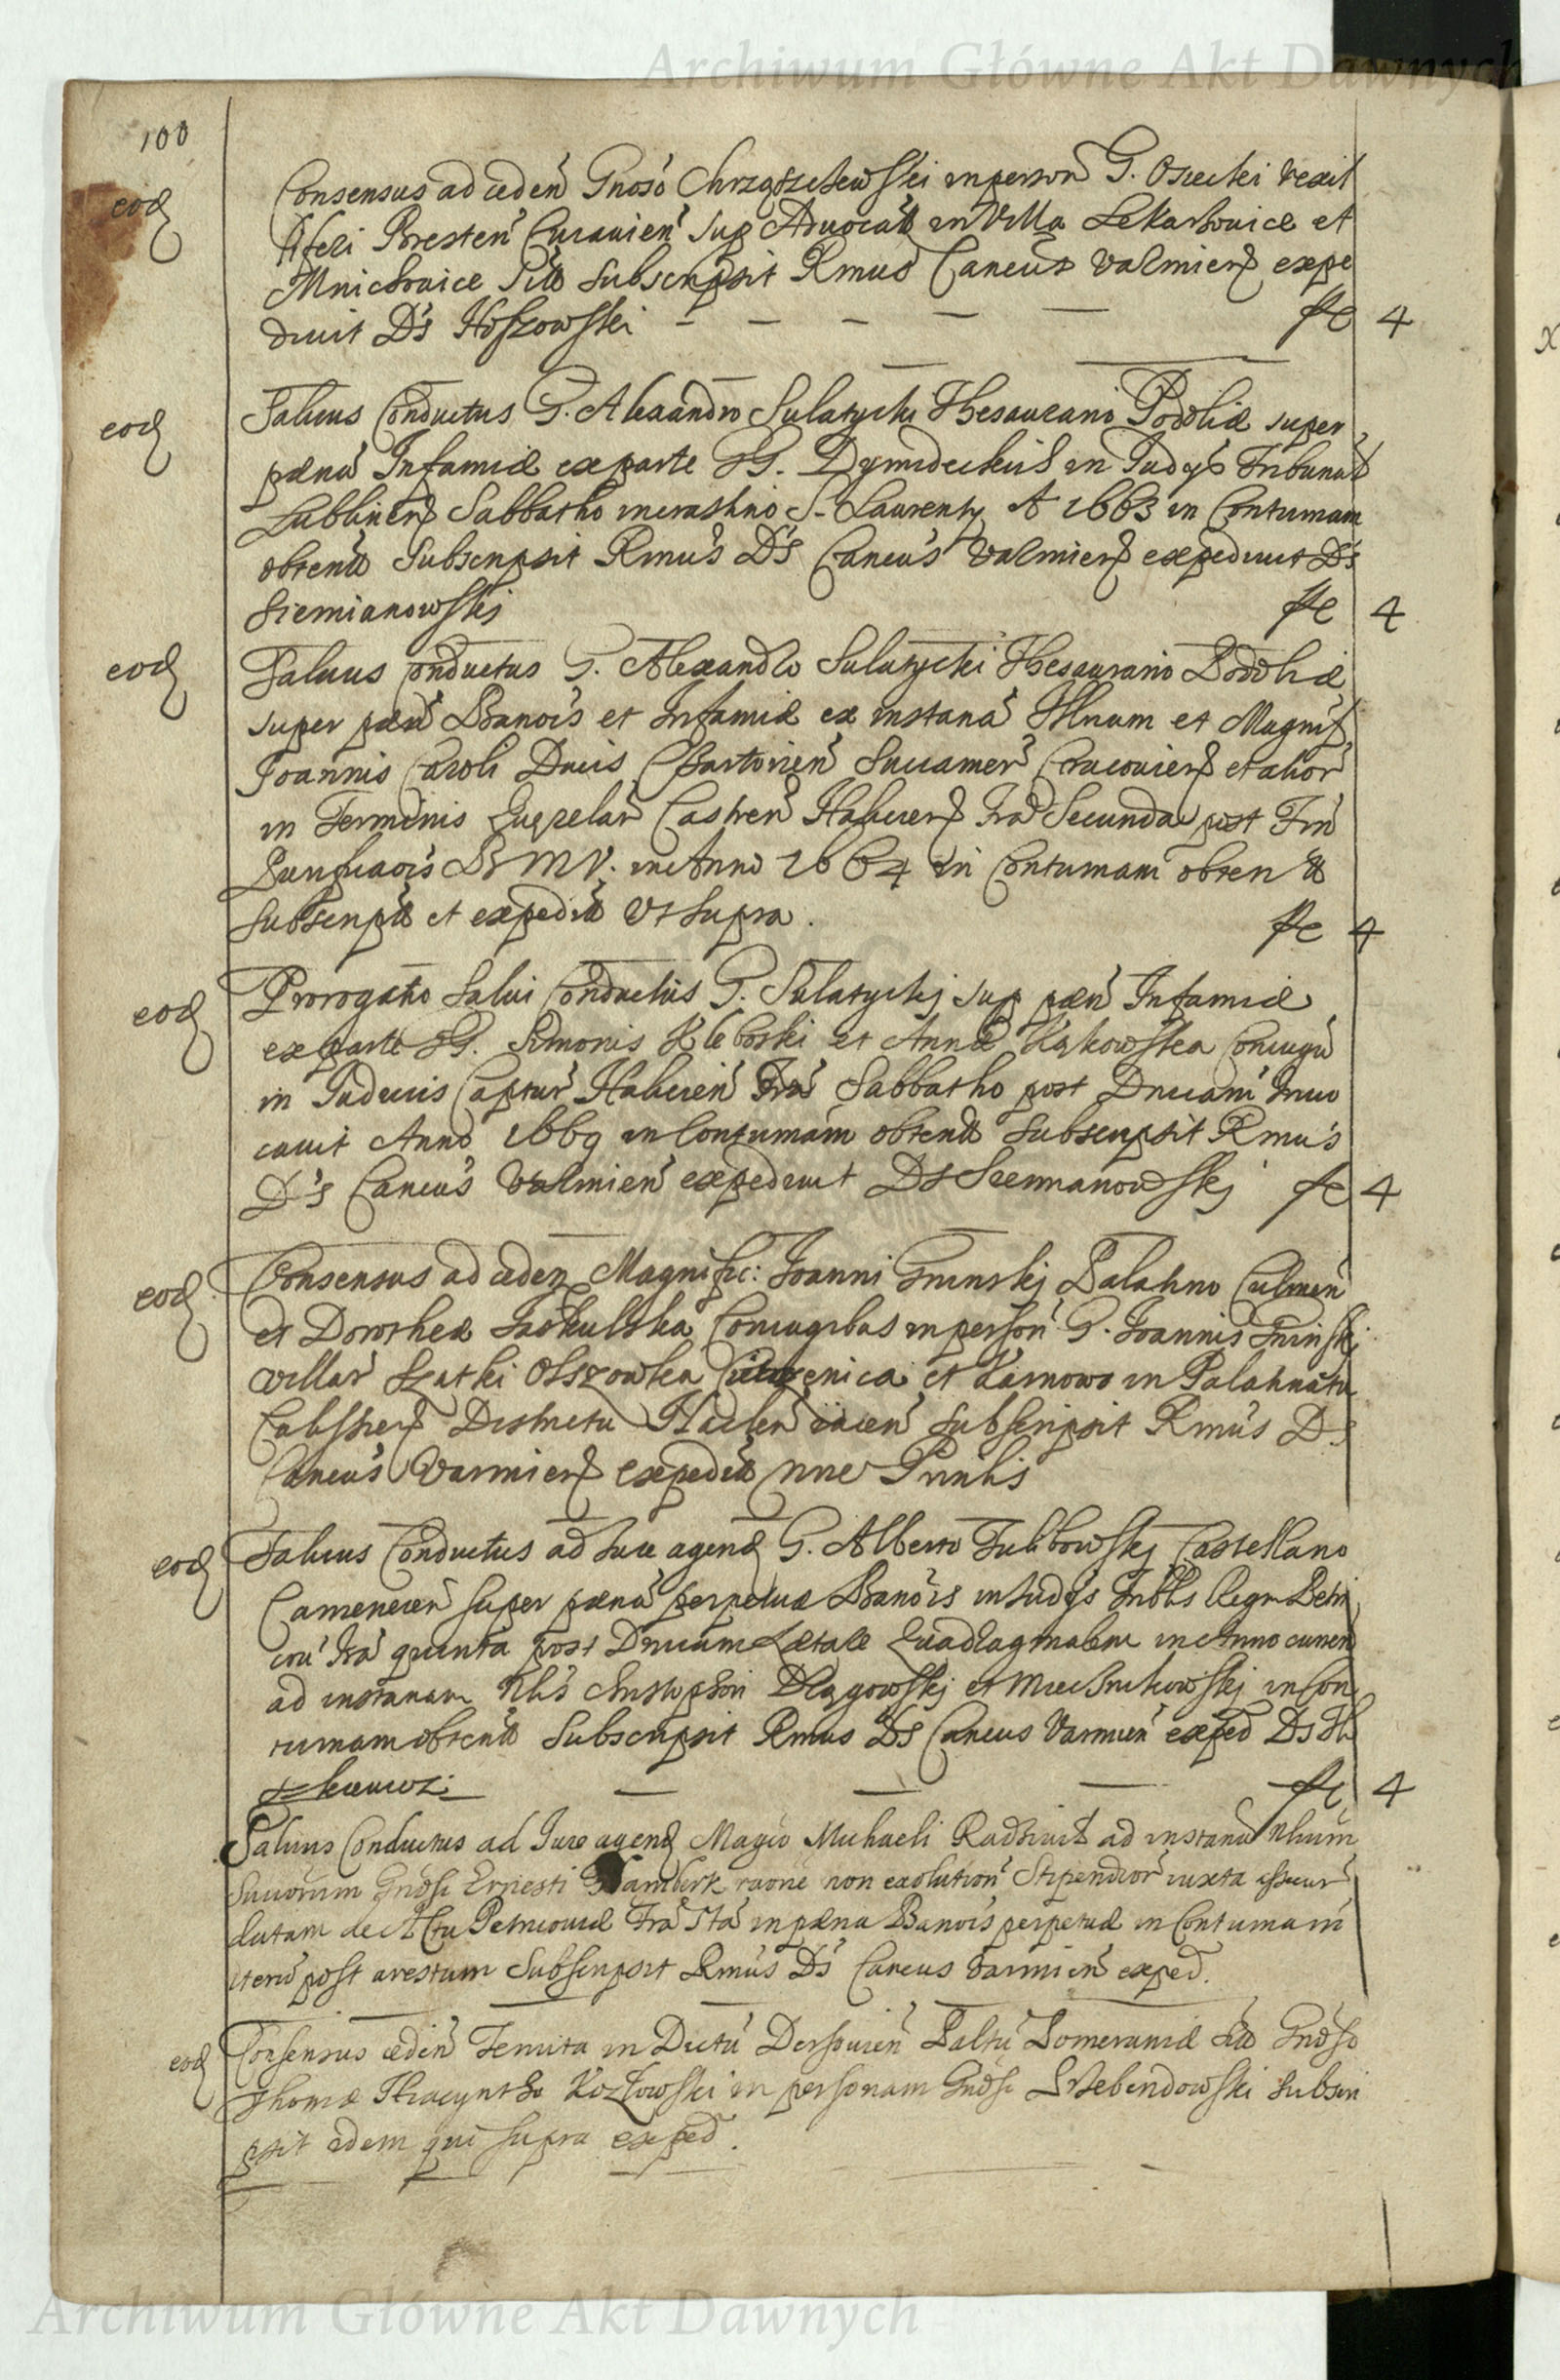 Archiwum Główne Akt Dawnych
100
eod
Consensus ad ceden Gnoso Chrząszczewski in person G. Osiecki Vexil
liferi Bresten Cuiavien sup Advocat in Villa Lekarzowice et
Mnichowice Subscripsit Rmus Cancus Valmien expe
divit Ds Hoszowski - - - - - fl 4
eod
Salvus Conductus G. Alexandro Sulatycki Thesaurario Podoliæ super
pæna Infamiæ ex parte GG. in Judys Tribunal
Lublinen Sabbatho in crastino S. Laurenty A 1663 in Contumam
obtent Subscripsit Rmus Ds Cancus Valmien expedivit Ds
Siemianowski fl 4
eod
Salvus Conductus G. Alexandro Sulatycki Thesaurario Podoliæ
super pæna Banois et Infamiæ ex instana Illmum et Magnif
Joannis Caroli Ducis Czartorien Succamer Cracovien et alior
in Terminis Querelar Castren Halicien Fra Secunda post Fm
Purificaois B M V. in Anno 1664 in Contumam obtent
Subscript et expedit Vt supra. fl 4
eod
Prorogatio Salvi Conductus G. Sulatyckj sup pæn Infamiæ
ex parte GG. Simonis et Annæ Kąkowska Coniugu
in Judicys Captur Halicien Fra Sabbatho post Dnicam Invo
cavit Anno 1669 in Contumam obtent Subscripsit Rmus
Ds Cancus Valmien expedivit Ds Siemianowskj fl 4
eod
Consensus ad ceden Magnific: Joanni Gninskj Palatino Culmen
et Dorotheæ Jaskulska Coniugibus in person G. Joannis Gninskj
villar Szatki Olszowka et Karnowo in Palatinatu
Calissien Districtu Naclen iacen Subscripsit Rmus Ds
Cancus Varmien expedit
eod
Salvus Conductus ad Jure agend G. Alberto Gulibowskj Castellano
Camenecen super pæna perpetuæ Banois in Judys Trblis Regn Petri
cov Fra quinta post Dnicam Lætare Quadragmalem in Anno curren
ad instanam Nlis Christophori et Miecznikowskj in Con
tumam obtent Subscripsit Rmus Ds Cancus Varmien exped Ds
fl 4
Salvus Conductus ad Jure agend Magco Michaeli Radziwił ad instana Nlium
Succorum Gnosi Ernesti raone non exolution Stipendior iuxta
dutam de Actu Petricoviæ Fra 5ta in pæna Banois perpetuæ in Contumam
post arestum Subscripsit Rmus Ds Cancus Varmien exped.
eod
Consensus ceden Tenuta in Dictu Palatu Pomeraniæ Gnoso
Thomæ Hiacyntho Kozłowski in personam Gnosi Przebendowski Subscri
psit idem qui supra exped.
Archiwum Główne Akt Dawnych